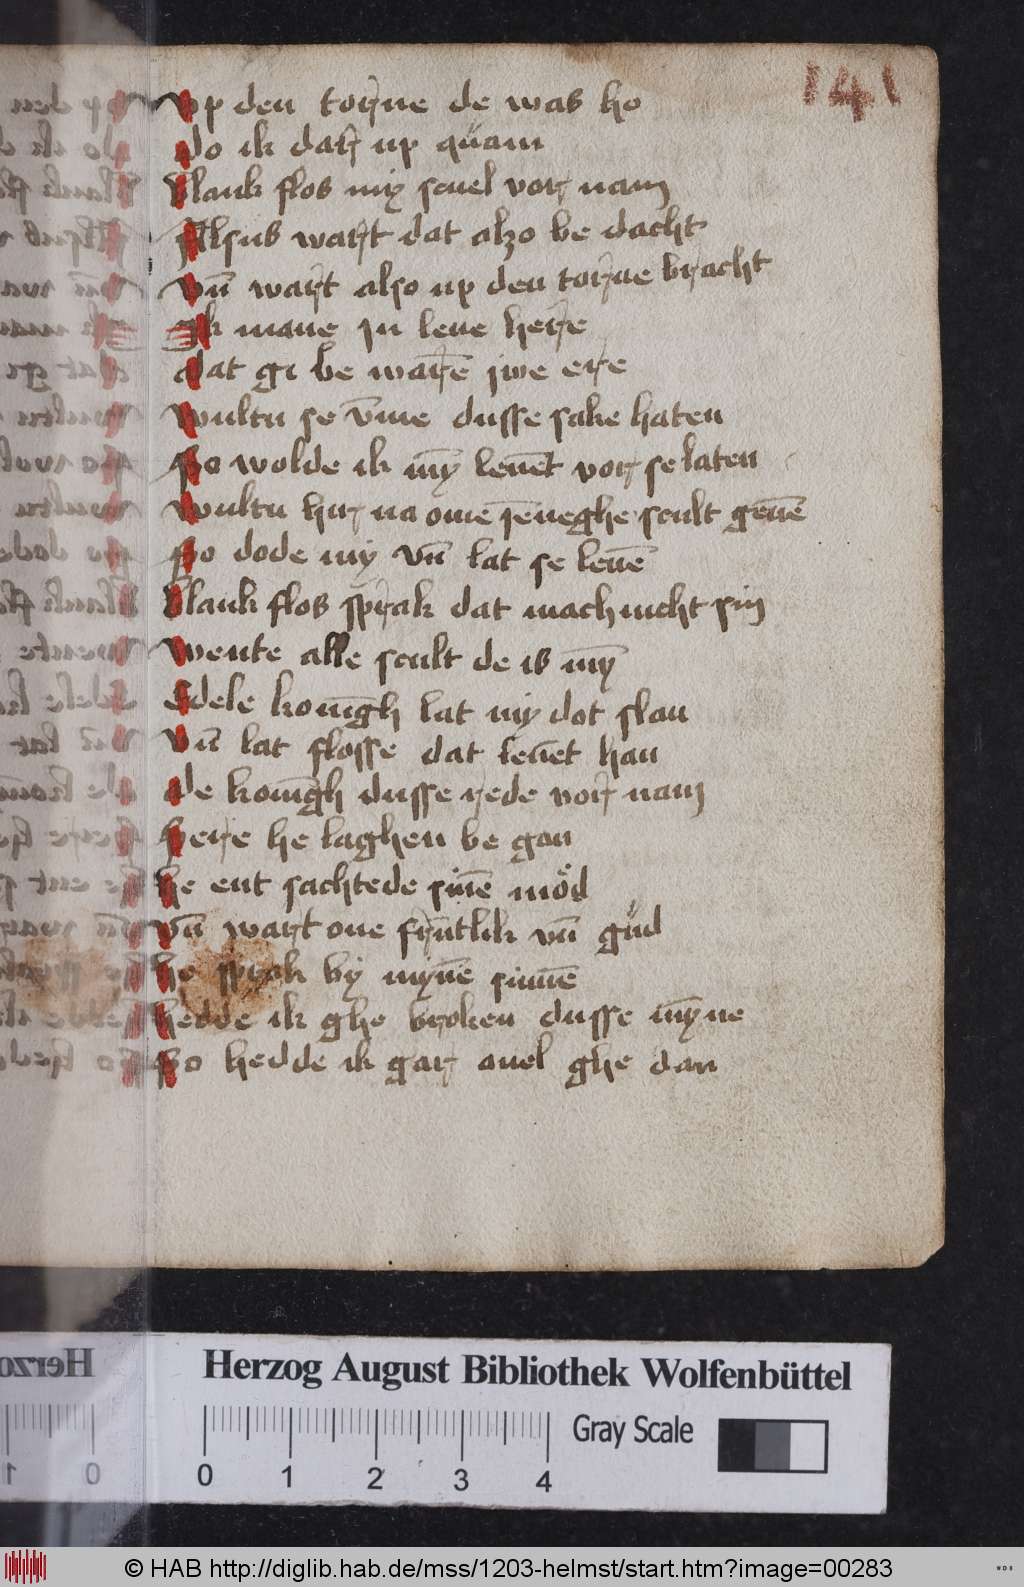 141
Vp den torne de was ho
do ik dar up quam
Blank flos my snel vor nam
Alsus wart dat alzo be dacht
vn̄ wart also up den torne bracht
Ik mane Iu leue here
dat gi be warē iwe ere
wultu se v̄me dusse sake haten
So wolde ik mȳ leuēt vor se laten
wultu hir na omē ieneghe scult geuē
So dode my vn̄ lat se leuē
Blank flos sprak dat mach nicht sin
wente alle scult de is mȳ
Edele konīgh lat my dot slan
vn̄ lat flosse dat leuēt han
de konīgh dusse rede vor nam
Here he laghen be gan
he ent sachtede sinē mod̊
vn̄ wart one frūtlik vn̄ gůd
he sprak by mynē sinnē
hedde ik ghe broken dusse mȳne
So hedde ik gar ouel ghe dan
Herzog August Bibliothek Wolfenbüttel
Gray Scale
0 1 2 3 4
© HAB http://diglib.hab.de/mss/1203-helmst/start.htm?image=00283